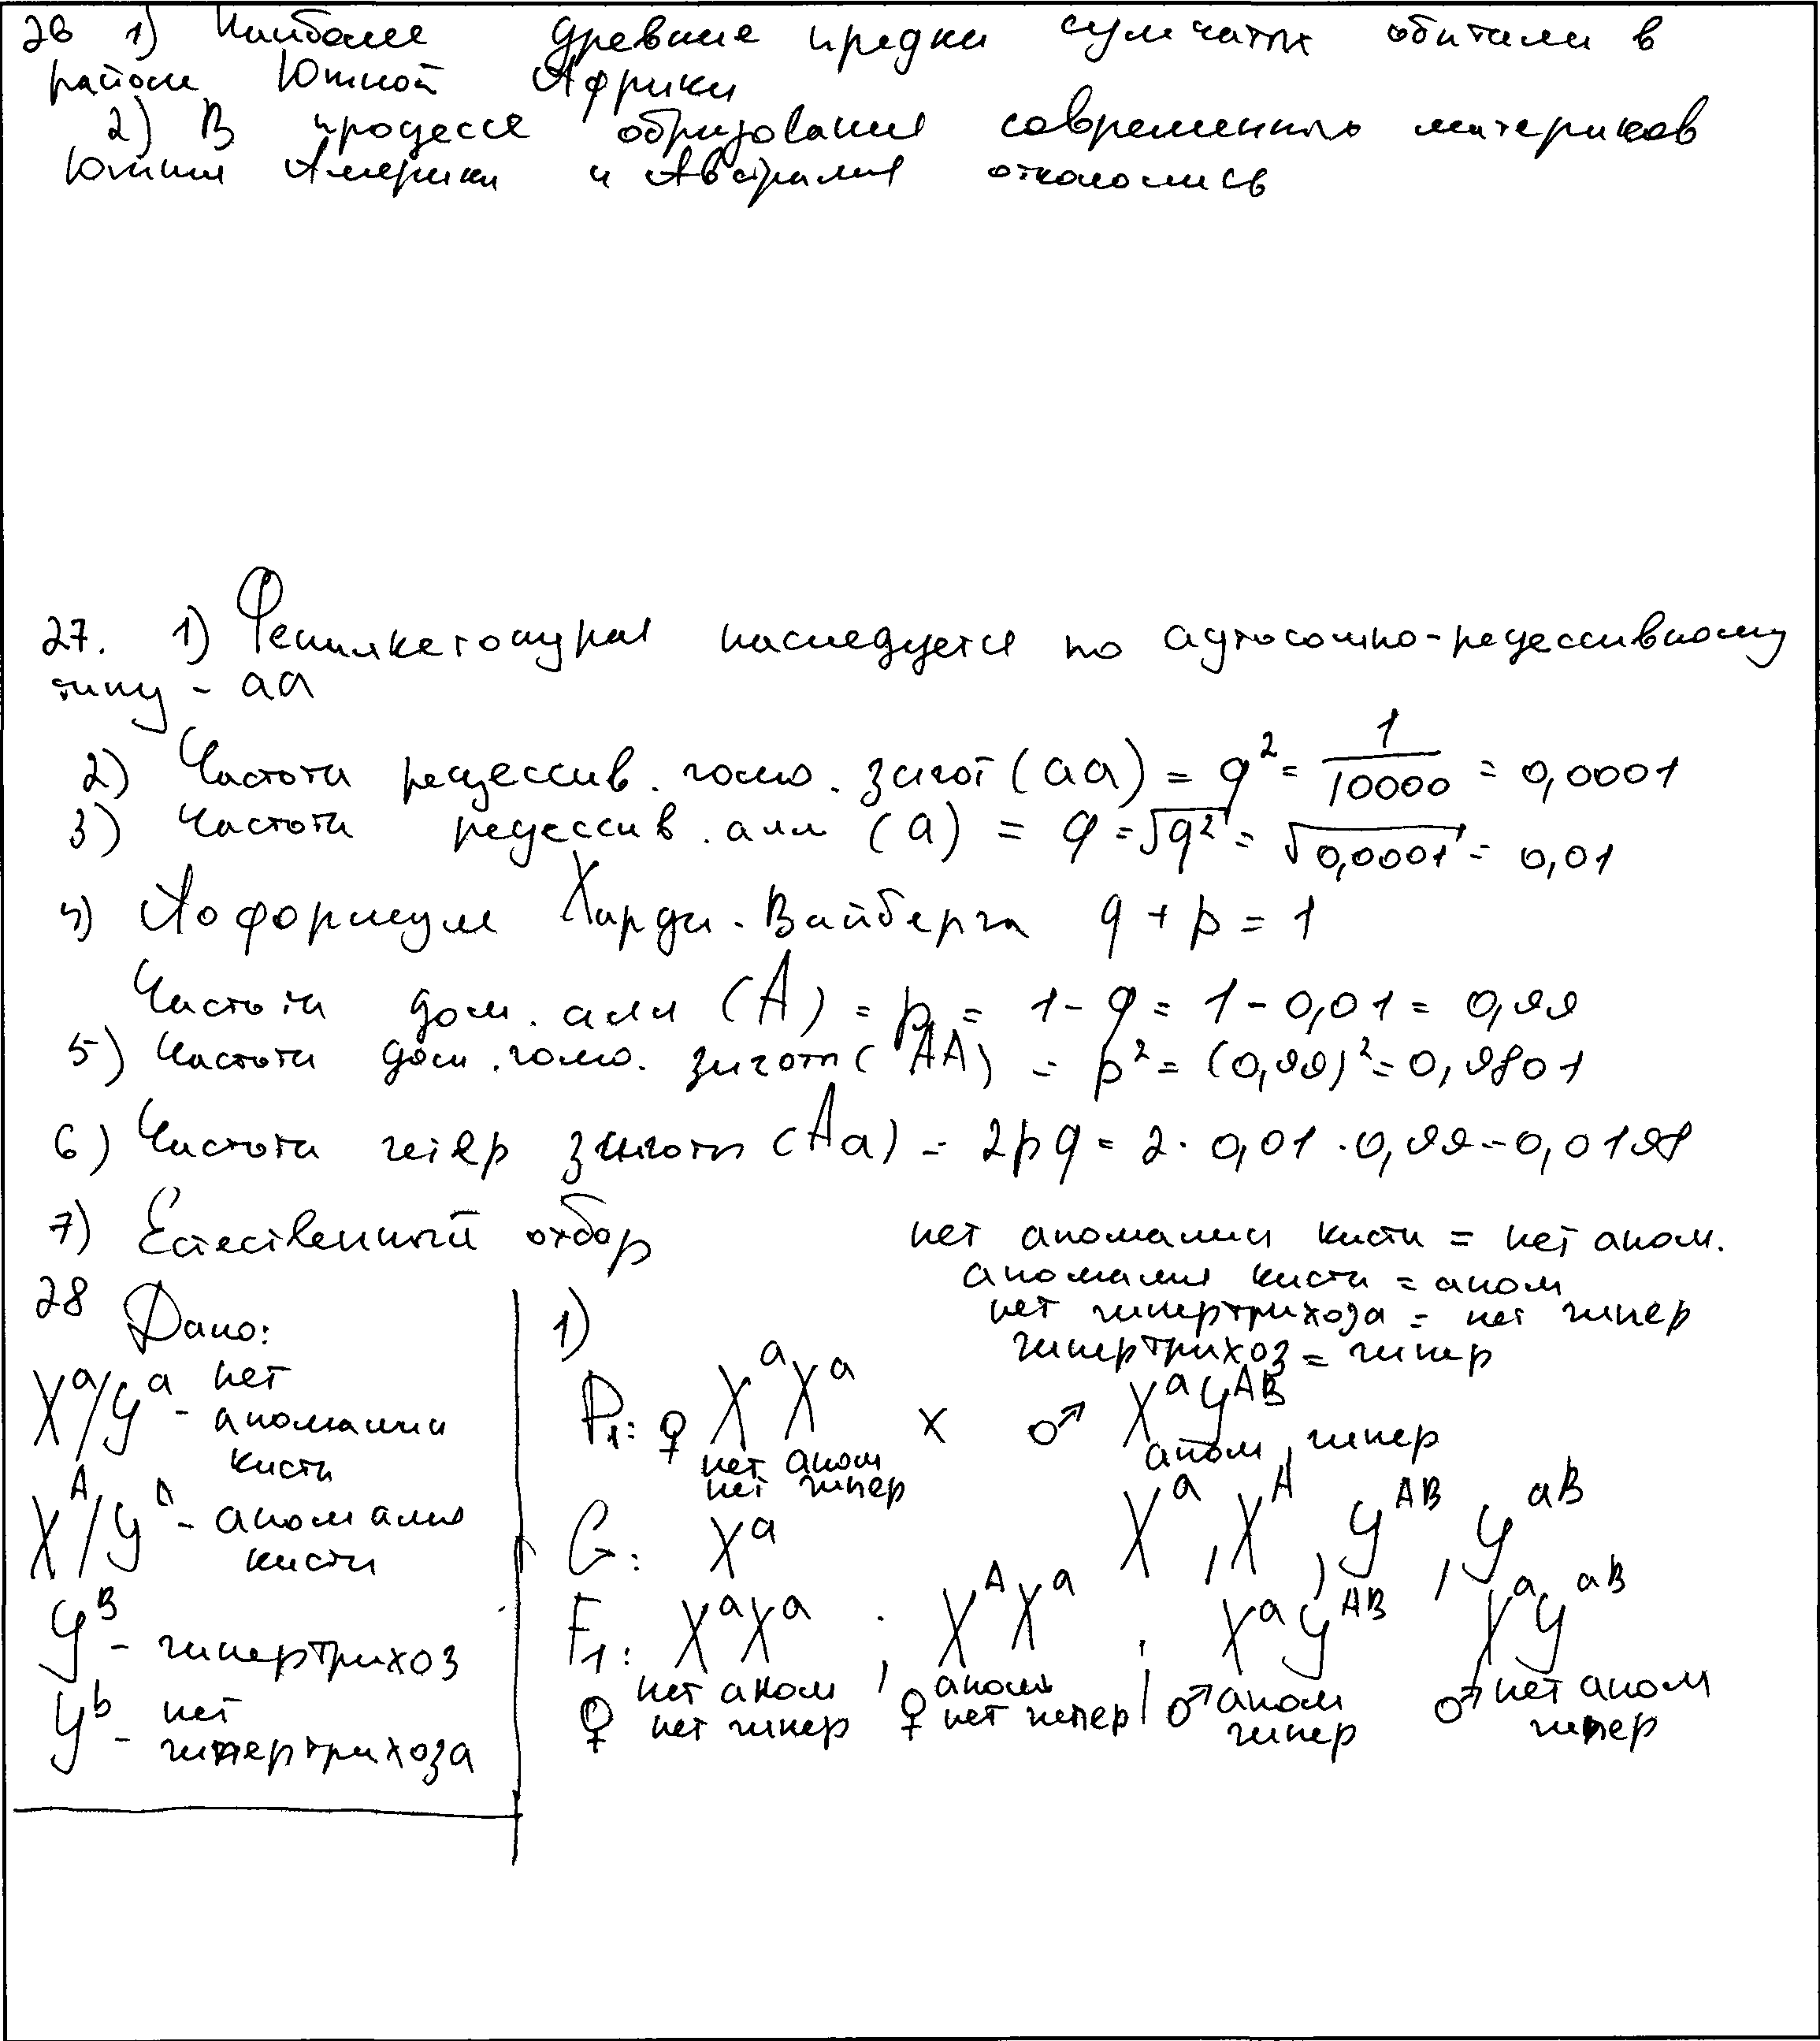 26 1) Наиболее древние предки сумчатых обитали в
районе Южной Африки
2) В процессе образования современных материков
Южная Америки и Австралия откололись
27. 1) Фенилкетонурия наследуется по аутосомно-рецессивному
типу - aa
2) Частота рецессив. гомо. зигот (aa) = q² = 1/10000 = 0,0001
3) Частота рецессив. алл (a) = q = √q² = √0,0001 = 0,01
4) По формуле Харди-Вайберга q + p = 1
Частота дом. алл (A) = p = 1 - q = 1 - 0,01 = 0,99
5) Частота дом. гомо. зигот (AA) = p² = (0,99)² = 0,9801
6) Частота гетер зигот (Aa) = 2pq = 2 · 0,01 · 0,99 = 0,0198
7) Естественный отбор
нет аномалии кисти = нет аном.
аномалия кисти = аном
нет гипертрихоза = нет гипер
гипертрихоз = гипер
28 Дано:
Xᵃ/Yᵃ - нет
аномалии
кисти
Xᴬ/Yᴬ - аномалия
кисти
Yᴮ - гипертрихоз
Yᵇ - нет
гипертрихоза
1)
P₁: ♀ XᵃXᵃ x ♂ XᵃYᴬᴮ
нет аном аном, гипер
нет гипер
G: Xᵃ Xᵃ, Xᴬ, Yᴬᴮ, Yᵃᴮ
F₁: XᵃXᵃ ; XᴬXᵃ ; XᵃYᴬᴮ XᵃYᵃᴮ
♀ нет аном , ♀ аном | ♂ аном ♂ нет аном
нет гипер нет гипер гипер гипер